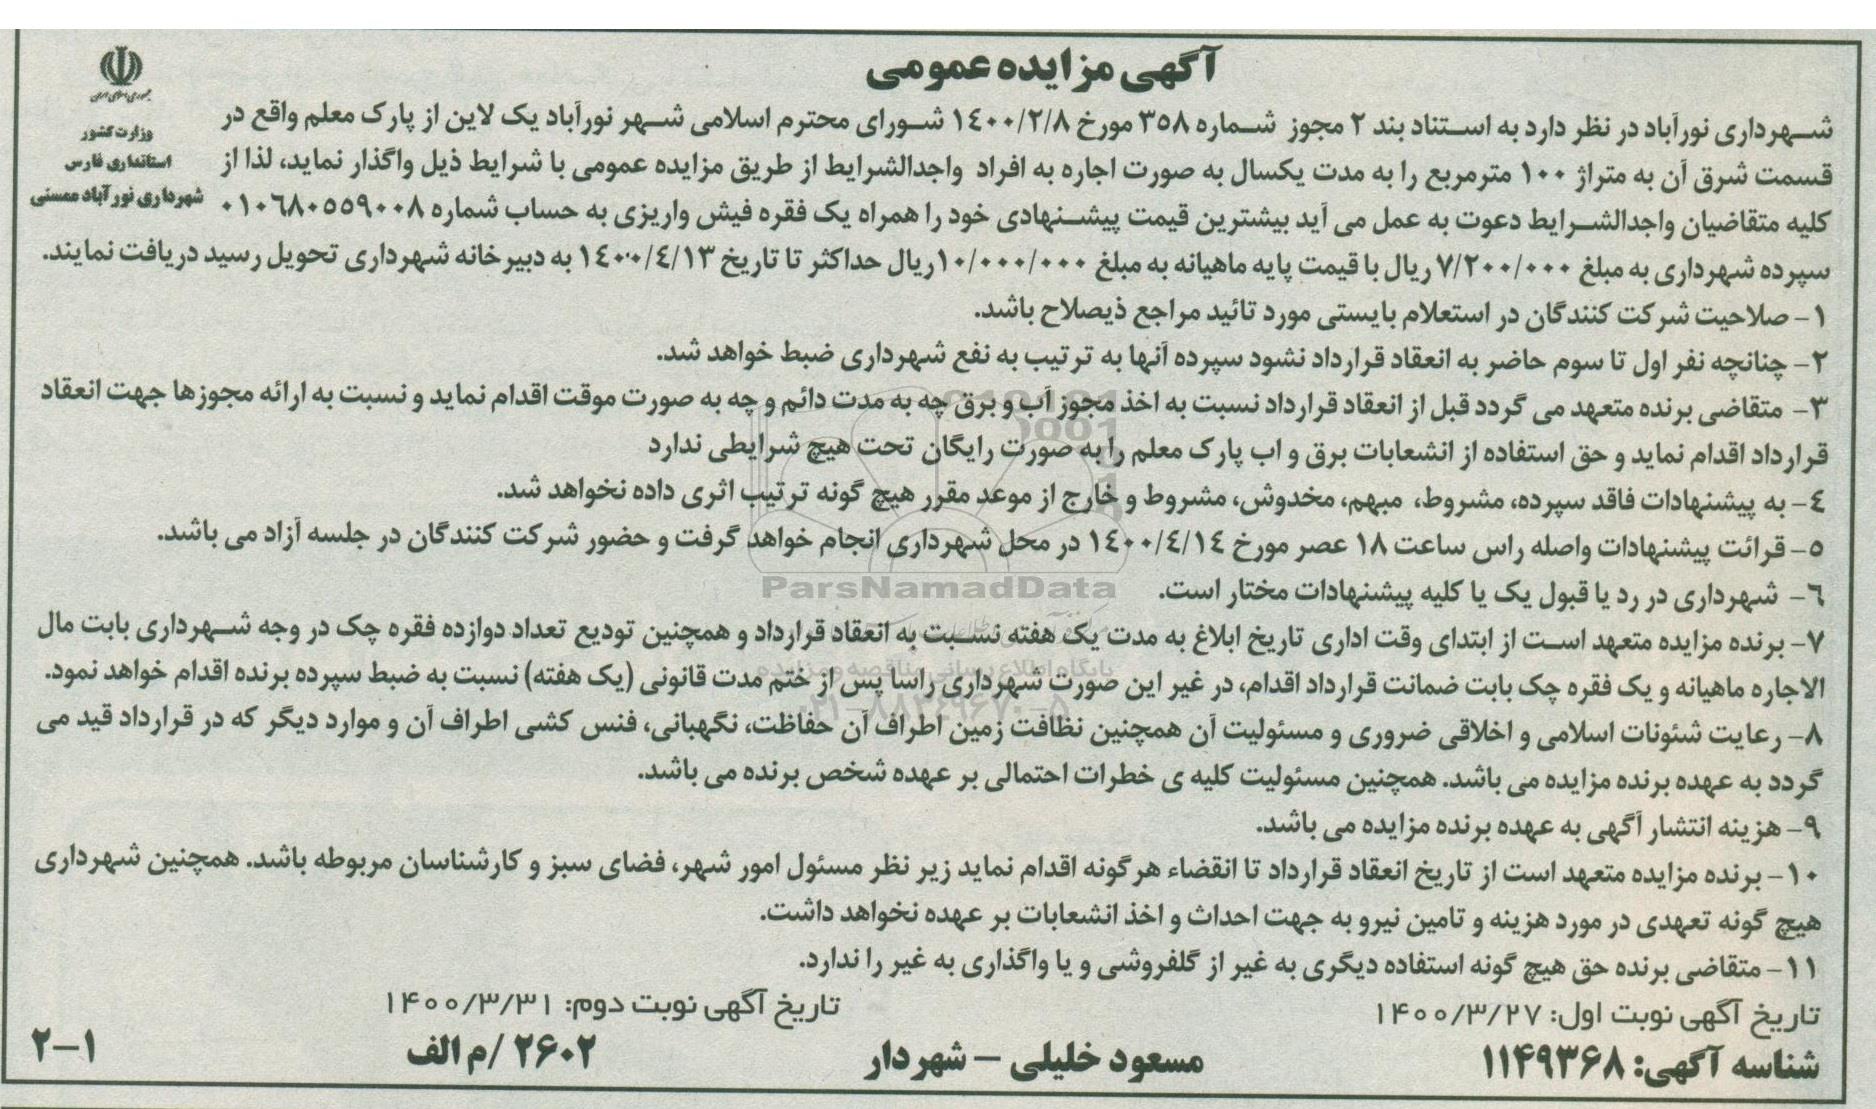 آگهی مزایده عمومی
جمهوری اسلامی ایران
وزارت کشور
استانداری فارس
شهرداری نورآباد ممسنی
شهرداری نورآباد در نظر دارد به استناد بند ۲ مجوز شماره ۳۵۸ مورخ ۱۴۰۰/۲/۸ شورای محترم اسلامی شهر نورآباد یک لاین از پارک معلم واقع در
قسمت شرق آن به متراژ ۱۰۰ مترمربع را به مدت یکسال به صورت اجاره به افراد واجدالشرایط از طریق مزایده عمومی با شرایط ذیل واگذار نماید، لذا از
کلیه متقاضیان واجدالشرایط دعوت به عمل می آید بیشترین قیمت پیشنهادی خود را همراه یک فقره فیش واریزی به حساب شماره ۰۱۰۶۸۰۵۵۹۰۰۸
سپرده شهرداری به مبلغ ۷/۲۰۰/۰۰۰ ریال با قیمت پایه ماهیانه به مبلغ ۱۰/۰۰۰/۰۰۰ ریال حداکثر تا تاریخ ۱۴۰۰/۴/۱۳ به دبیرخانه شهرداری تحویل رسید دریافت نمایند.
۱- صلاحیت شرکت کنندگان در استعلام بایستی مورد تائید مراجع ذیصلاح باشد.
۲- چنانچه نفر اول تا سوم حاضر به انعقاد قرارداد نشود سپرده آنها به ترتیب به نفع شهرداری ضبط خواهد شد.
۳- متقاضی برنده متعهد می گردد قبل از انعقاد قرارداد نسبت به اخذ مجوز آب و برق چه به مدت دائم و چه به صورت موقت اقدام نماید و نسبت به ارائه مجوزها جهت انعقاد
قرارداد اقدام نماید و حق استفاده از انشعابات برق و اب پارک معلم را به صورت رایگان تحت هیچ شرایطی ندارد
۴- به پیشنهادات فاقد سپرده، مشروط، مبهم، مخدوش، مشروط و خارج از موعد مقرر هیچ گونه ترتیب اثری داده نخواهد شد.
۵- قرائت پیشنهادات واصله راس ساعت ۱۸ عصر مورخ ۱۴۰۰/۴/۱۴ در محل شهرداری انجام خواهد گرفت و حضور شرکت کنندگان در جلسه آزاد می باشد.
ParsNamadData
۶- شهرداری در رد یا قبول یک یا کلیه پیشنهادات مختار است.
۷- برنده مزایده متعهد است از ابتدای وقت اداری تاریخ ابلاغ به مدت یک هفته نسبت به انعقاد قرارداد و همچنین تودیع تعداد دوازده فقره چک در وجه شهرداری بابت مال
پایگاه اطلاع رسانی مناقصه و مزایده
الاجاره ماهیانه و یک فقره چک بابت ضمانت قرارداد اقدام، در غیر این صورت شهرداری راسا پس از ختم مدت قانونی (یک هفته) نسبت به ضبط سپرده برنده اقدام خواهد نمود.
۰۲۱-۸۸۳۴۹۶۷۰-۵
۸- رعایت شئونات اسلامی و اخلاقی ضروری و مسئولیت آن همچنین نظافت زمین اطراف آن حفاظت، نگهبانی، فنس کشی اطراف آن و موارد دیگر که در قرارداد قید می
گردد به عهده برنده مزایده می باشد. همچنین مسئولیت کلیه ی خطرات احتمالی بر عهده شخص برنده می باشد.
۹- هزینه انتشار آگهی به عهده برنده مزایده می باشد.
۱۰- برنده مزایده متعهد است از تاریخ انعقاد قرارداد تا انقضاء هرگونه اقدام نماید زیر نظر مسئول امور شهر، فضای سبز و کارشناسان مربوطه باشد. همچنین شهرداری
هیچ گونه تعهدی در مورد هزینه و تامین نیرو به جهت احداث و اخذ انشعابات بر عهده نخواهد داشت.
۱۱- متقاضی برنده حق هیچ گونه استفاده دیگری به غیر از گلفروشی و یا واگذاری به غیر را ندارد.
تاریخ آگهی نوبت اول: ۱۴۰۰/۳/۲۷
تاریخ آگهی نوبت دوم: ۱۴۰۰/۳/۳۱
شناسه آگهی: ۱۱۴۹۳۶۸
مسعود خلیلی – شهردار
۲۶۰۲ /م الف
۲-۱